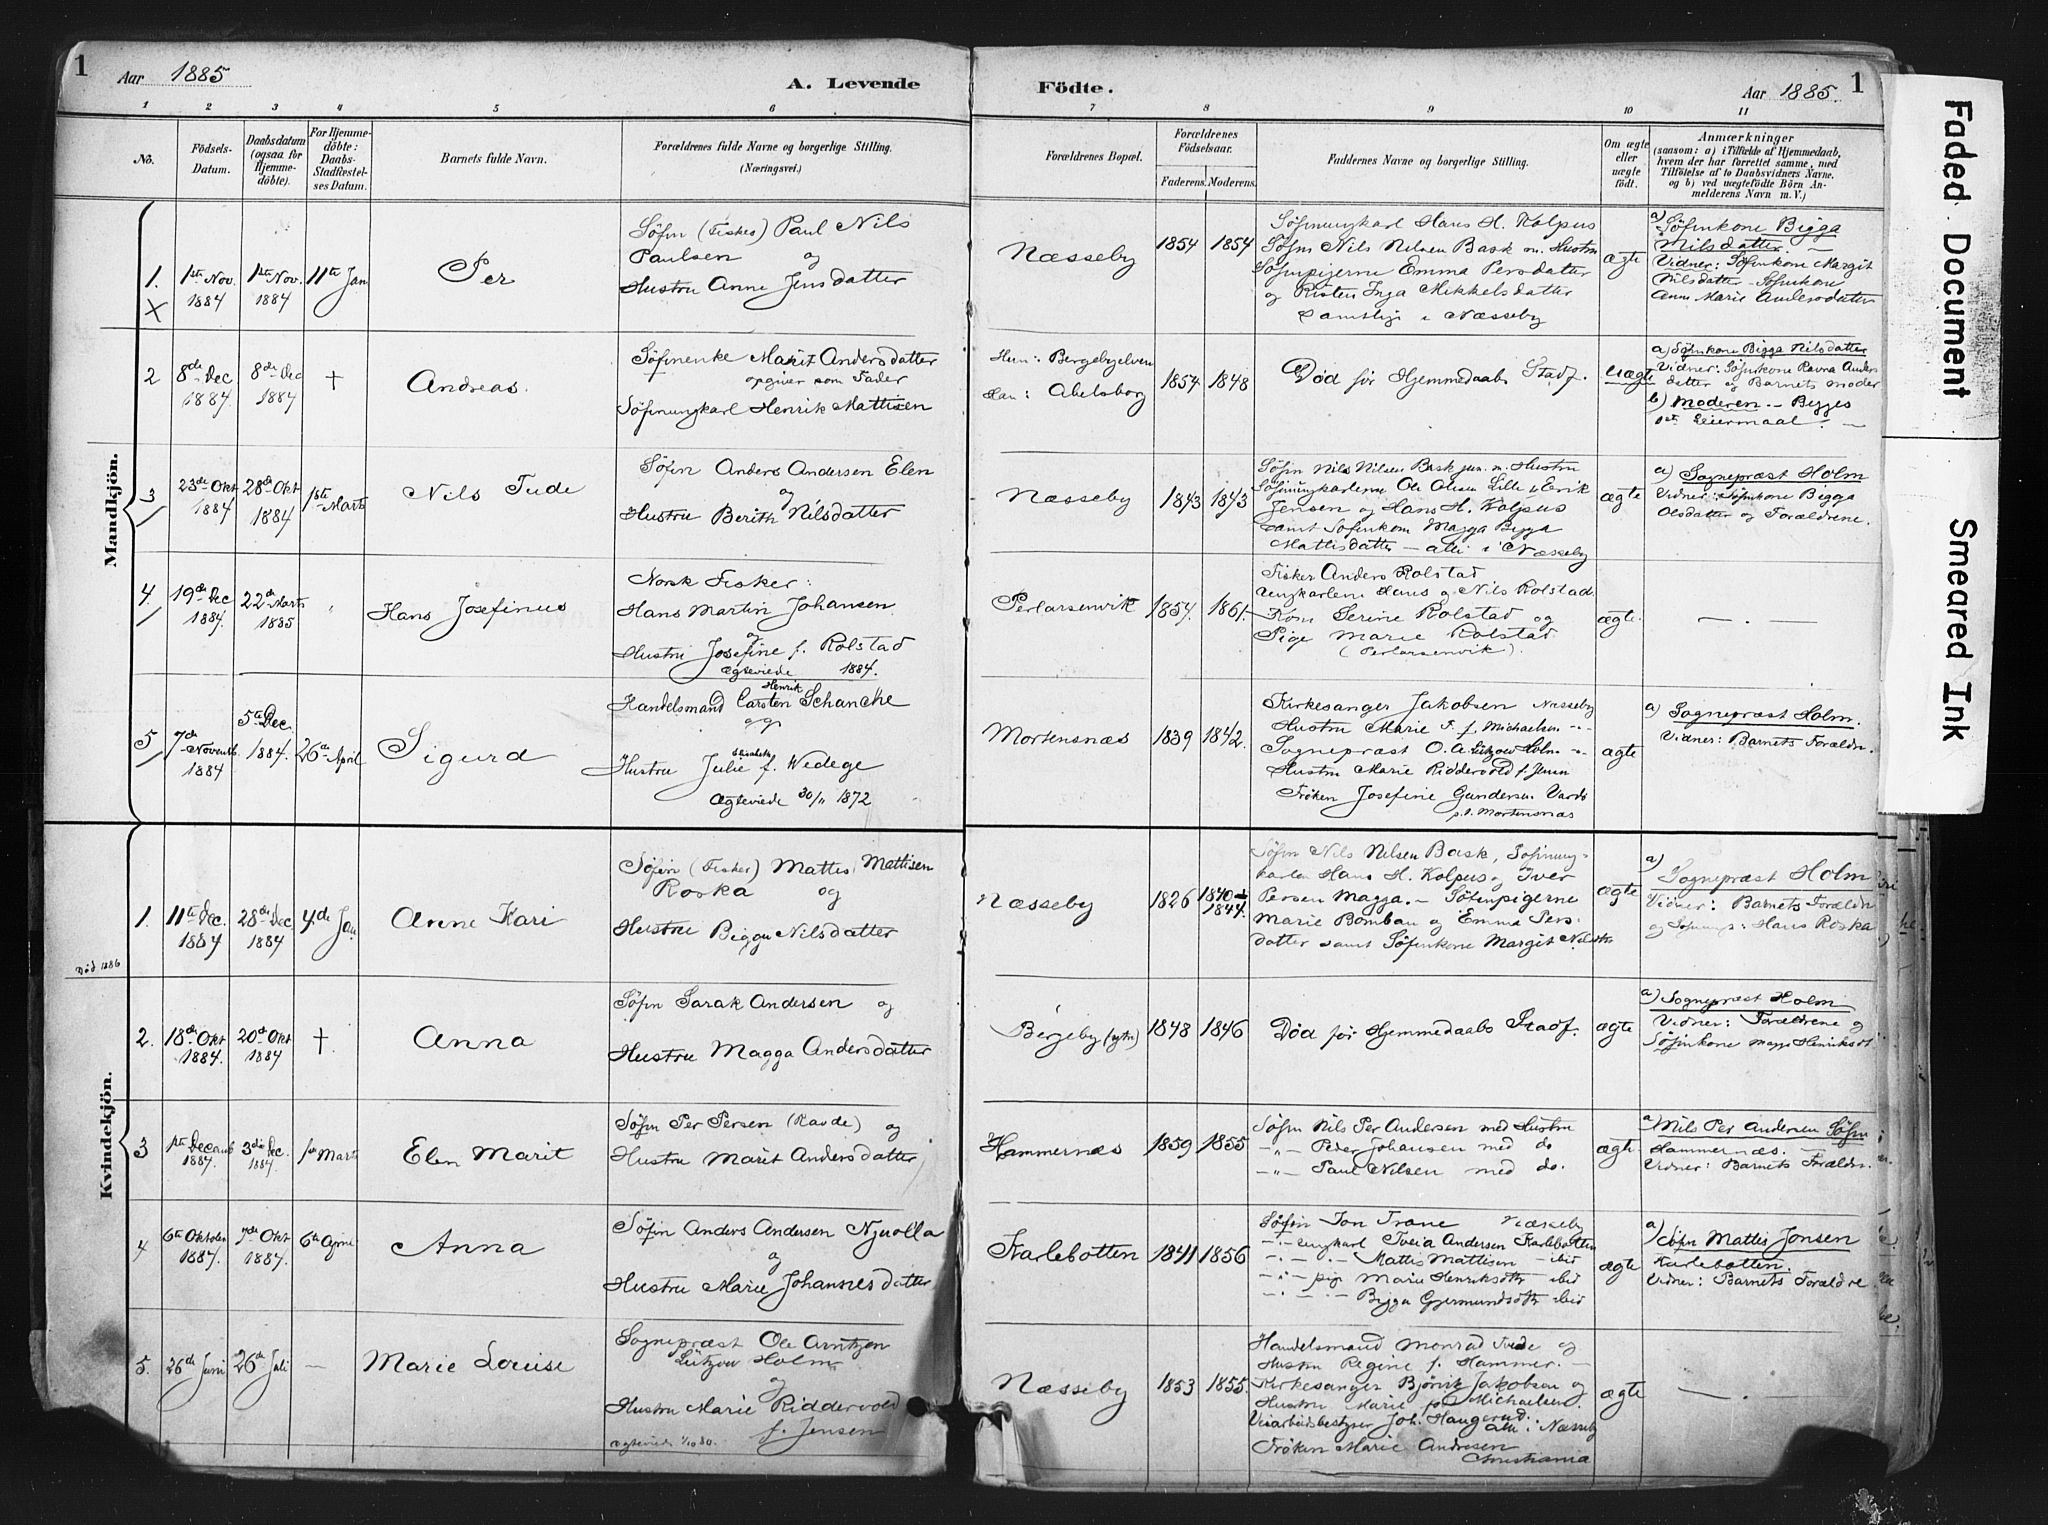 1
Aar 1885
A. Levende
1 2 3 4 5 6
No.
Födsels-
Datum.
Daabsdatum
(ogsaa for
Hjemme-
döbte).
For Hjemme-
döbte:
Daabs-
Stadfæstel-
ses Datum.
Barnets fulde Navn.
Forældrenes fulde Navne og borgerlige Stilling.
(Næringsvei.)
Mandkjön.
1.
X
1ste Nov.
1884
1ste Nov.
1884
11te Jan
Per
Söfin (Fisker) Paul Nils
Paulsen og
Hustru Anne Jensdatter
2
8de Dec
1884.
8de Dec
1884
†
Andreas.
Söfinenke Marit Andersdatter
opgiver som Fader
Söfinungkarl Henrik Mattisen
3
23de Okt
1884
28de Okt
1884
1ste Marts
Nils Tude
Söfin Anders Andersen Elen
og
Hustru Berith Nilsdatter
4.
19de Dec
1884.
22de Marts
1885
"
Hans Josefinus
Norsk Fisker:
Hans Martin Johansen
og
Hustru Josefine f. Rolstad
Ægteviede 1884.
5
7de Novemb.
1884
5te Dec.
1884.
26de April
Sigurd
Henrik
Handelsmand Carsten Schanche
og
Elisabeth
Hustru Julie f. Wedege
Ægteviede 30/11 1872
Kvindekjön.
1.
Död 1886
11te Dec.
1884
28de Dec
1884
4de Jan
Anne Kari
Söfin (Fisker) Mattis Mattisen
Roska og
Hustru Bigga Nilsdatter
2.
18de Okt
1884.
20de Okt
1884
†.
Anna
Söfin Sarak Andersen og
Hustru Magga Andersdatter
3
1ste Decemb
1884.
3die Dec.
1884.
1ste Marts
Elen Marit
Söfin Per Persen (Ravde) og
Hustru Marit Andersdatter
4
6te Oktober
1884.
7de Okt
1884.
6te April
Anna
Söfin Anders Andersen Njuolla
og
Hustru Marie Johannesdatter
5.
26de Juni
26de Juli
—
Marie Louise
Sognepræst Ole Arntzen
Lützow Holm
og
Hustru Marie Riddervold
f. Jensen
Födte.
Aar 1885.
1
7 8 9 10 11
Forældrenes Bopæl.
Forældrenes
Födselsaar.
Faderens. Moderens.
Faddernes Navne og borgerlige Stilling.
Om ægte
eller
uægte
födt.
Anmærkninger
(saasom: a) i Tilfælde af Hjemmedaab,
hvem der har forrettet samme, med
Tilföielse af to Daabsvidners Navne.
og b) ved uægtefödte Börn An-
melderens Navn m.V.)
Næsseby
1854 1854
Söfinungkarl Hans H. Kolpus
Söfin Nils Nilsen Bask m. Hustru
Söfinpigerne Emma Persdatter
og Risten Inga Mikkelsdatter
Samtlige i Næsseby
ægte
a) Söfinkone Bigga
Nilsdatter.
Vidner: Söfinkone Margit
Nilsdatter Söfinkone
Anne Marie Andersdatter
Hun: Bergebyelven
Han: Abelsborg
1854 1848
Död för Hjemmedaabs Stadf.
Uægte
a) Söfinkone Bigga Nilsdatter
Vidner: Söfinkone Ravna Anders
datter og Barnets Moder
b) Moderen. – Begges
1ste Leiermaal. —
Næsseby
1843 1843
Söfin Nils Nilsen Bask jun. m. Hustru
Söfinungkarlerne Ole Olsen Lille, Erik
Jensen og Hans H. Kolpus
samt Söfinkone Magga Bigga
Mattisdatter – alle i Næsseby
ægte
a) Sognepræst Holm
Vidner: Söfinkone Bigga
Olsdatter og Forældrene.
Perlarsenvik
1854. 1861.
Fisker Anders Rolstad
Ungkarlene Hans og Nils Rolstad
Kone Serine Rolstad og
Pige Marie Rolstad
(Perlarsenvik).
ægte.
— . —
Mortensnæs
1839 1842.
Kirkesanger Jakobsen Næsseby
Hustru Marie F. f. Michaelsen -"-
Sognepræst O. A. Lützow Holm -"-
Hustru Marie Riddervold f. Jensen
Fröken Josefine Gundersen Vardö
p.t. Mortensnæs
ægte
a) Sognepræst Holm.
Vidner: Barnets Forældre.
Næsseby
1826 1840–1/1 1844.
Söfin Nils Nilsen Bask, Söfinung-
karlen Hans H. Kolpus og Iver
Persen Magga. – Söfinpigerne
Marie Bomban og Emma Pers-
datter samt Söfinkone Margit Nilsdtr
ægte
a) Sognepræst Holm
Vidner: Barnets Forældre
og Söfinungk: Hans Roska
Bergeby (ytre)
1848 1846
Död för Hjemmedaabs Stadf.
ægte
a) Sognepræst Holm
Vidner: Forældrene og
Söfinkone Magga Henriksdt
Hammernæs
1859 1855
Söfin Nils Per Andersen med Hustru
-"- Peder Johansen med do
-"- Paul Nilsen med do.
ægte
a) Nils Per Andersen Söfin
Hammernæs. —
Vidner: Barnets Forældre.
Karlebotten
1841 1856
Söfin Jon Trane Næsseby
-"- ungkarl Andersen Karlebotten
-"- -"- Mattis Mattisen – ibid
-"- pige Marie Henriksdtr ibid
-"- -"- Bigga Gjermundsdtr ibid
ægte
a) Söfin Mattis Jonsen
Karlebotten.
Vidner: Barnets Forældre
Næsseby
1853 1855.
Handelsmand Monrad Tvede og
Hustru Regine f. Hammer. —
Kirkesanger Björvik Jakobsen og
Hustru Marie f. Michaelsen.
Veiarbeidsbestyrer Joh. Haugerud.
alle i Næsseby
Fröken Marie Andresen
Christiania
ægte
— . —
Faded Document
Smeared Ink